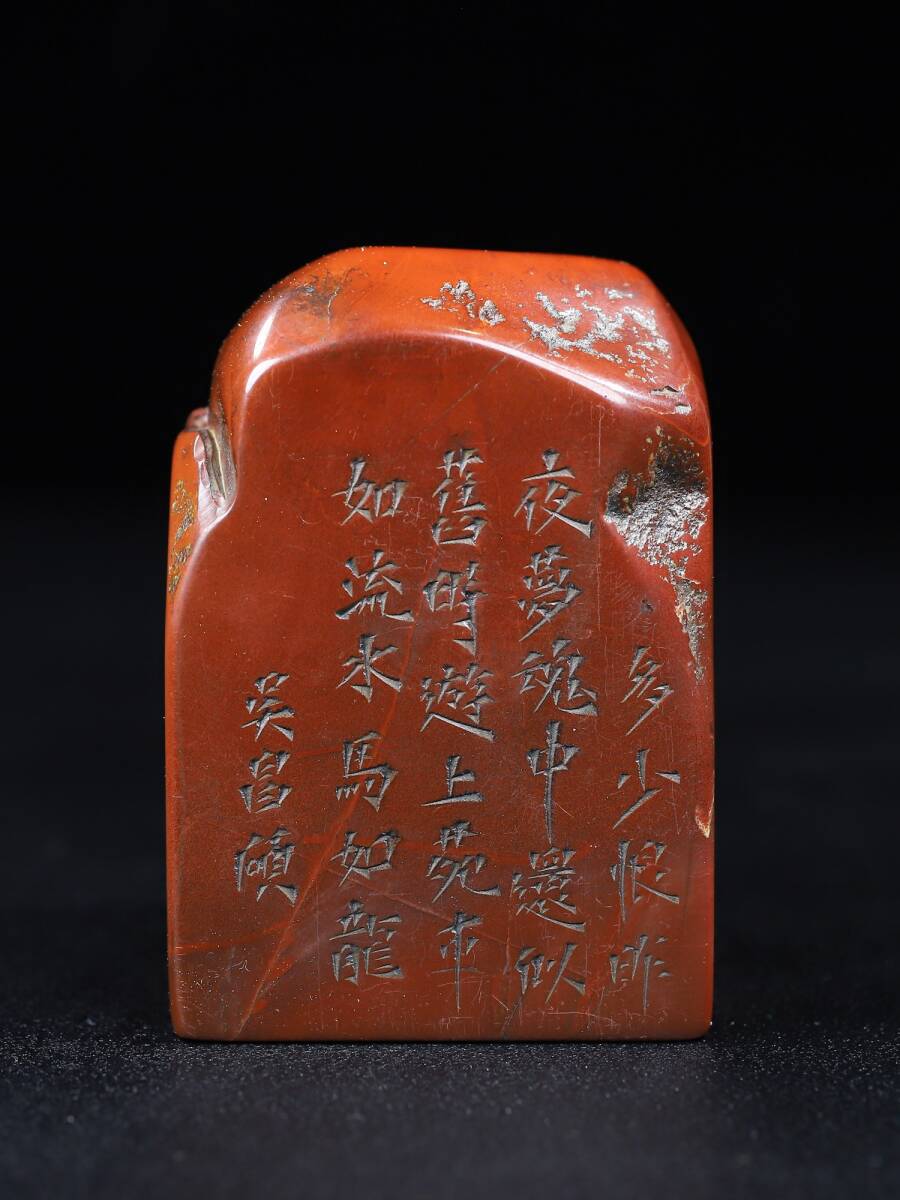 多少恨昨
夜夢魂中還似
舊時遊上苑車
如流水馬如龍
吳昌碩